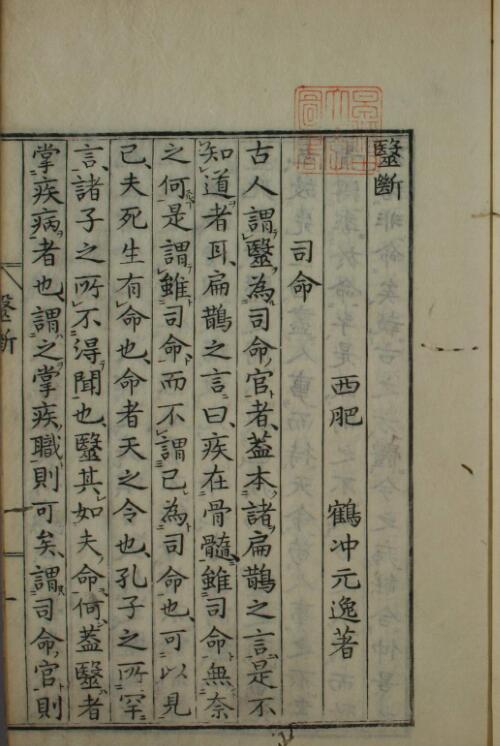 毉斷
西肥　鶴冲元逸著
司命
古人謂毉為司命官者、蓋本諸扁鵲之言、是不
知道者耳、扁鵲之言曰、疾在骨髓、雖司命無奈
之何、是謂雖司命而不謂己為司命也、可以見
已、夫死生有命也、命者天之令也、孔子之所罕
言、諸子之所不得聞也、毉其如夫命何、蓋毉者
掌疾病者也、謂之掌疾職則可矣、謂司命官則
毉斷
一